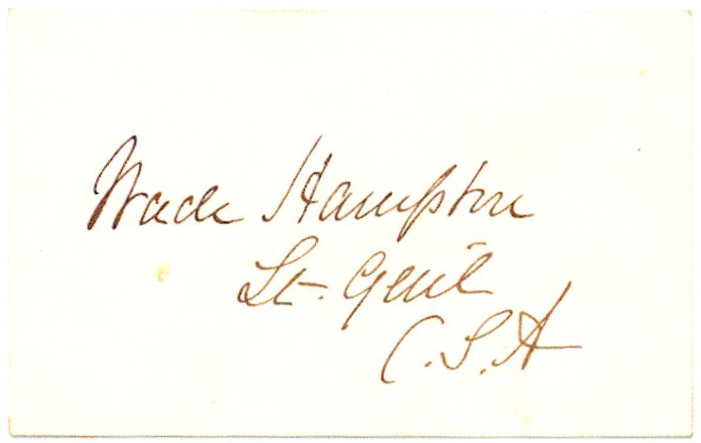 Wade Hampton
Lt. Genl
C.S.A